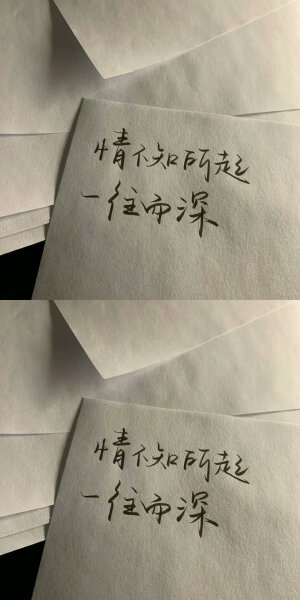 情不知所起
一往而深
情不知所起
一往而深